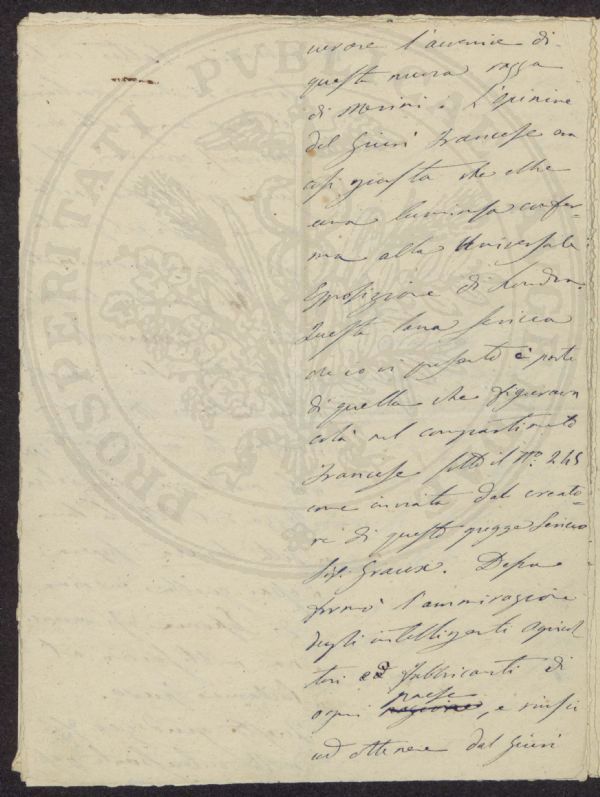 l'avvenire di
questa nuova razza
di Merini. L'opinione
del Giurì Francese era
così giusta che ebbe
una luminosa confer-
ma alla Universale
Esposizione di Londra.
Questa lana sericea
che io vi presento è parte
di quella che figurava
colà nel compartimento
Francese sotto il Nro. 245
come inviata dal creato-
re di questo gregge Sericeo
Sig. Graux. Dessa
formò l'ammirazione
degli intelligenti agricol-
tori ed fabbricanti di
ogni paese, e riuscì
ad ottenere dal Giurì
PROSPERITATI PVBLICAE